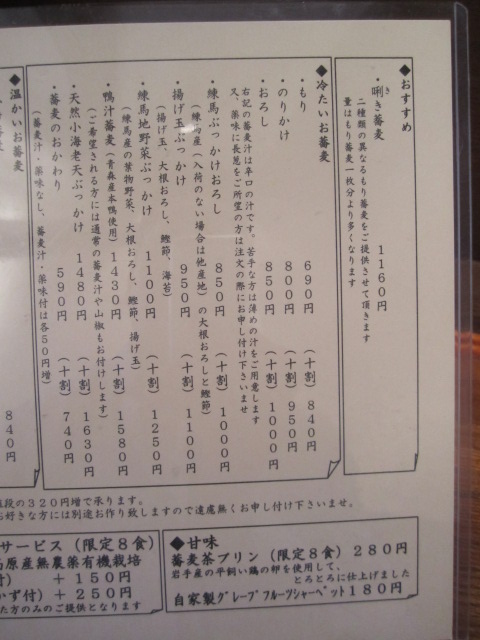 ◆おすすめ
・唎き蕎麦　１１６０円
き
二種類の異なるもり蕎麦をご提供させて頂きます
量はもり蕎麦一枚分より多くなります
◆冷たいお蕎麦
・もり　６９０円　（十割）８４０円
・のりかけ　８００円　（十割）９５０円
・おろし　８５０円　（十割）１０００円
右記の蕎麦汁は辛口の汁です。苦手な方は薄めの汁をご用意します
又、薬味に長葱をご所望の方は注文の際にお申し付け下さいませ
・練馬ぶっかけおろし　８５０円　（十割）１０００円
（練馬産（入荷のない場合は他産地）の大根おろしと鰹節）
・揚げ玉ぶっかけ　９５０円　（十割）１１００円
（揚げ玉、大根おろし、鰹節、海苔）
・練馬地野菜ぶっかけ　１１００円　（十割）１２５０円
（練馬産の葉物野菜、大根おろし、鰹節、揚げ玉）
・鴨汁蕎麦（青森産本鴨使用）１４３０円　（十割）１５８０円
（ご希望される方には通常の蕎麦汁や山椒もお付けします）
・天然小海老天ぶっかけ　１４８０円　（十割）１６３０円
・蕎麦のおかわり　５９０円　（十割）７４０円
（蕎麦汁・薬味なし、蕎麦汁・薬味付は各５０円増）
◆温かいお蕎麦
８４０円
段の３２０円増で承ります。
お好きな方には別途お作り致しますので遠慮無くお申し付け下さいませ。
サービス（限定８食）
高原産無農薬有機栽培
付）　＋１５０円
かず付）＋２５０円
た方のみのご提供となります
◆甘味
蕎麦茶プリン（限定８食）２８０円
岩手産の平飼い鶏の卵を使用して、
とろとろに仕上げました
自家製グレープフルーツシャーベット１８０円